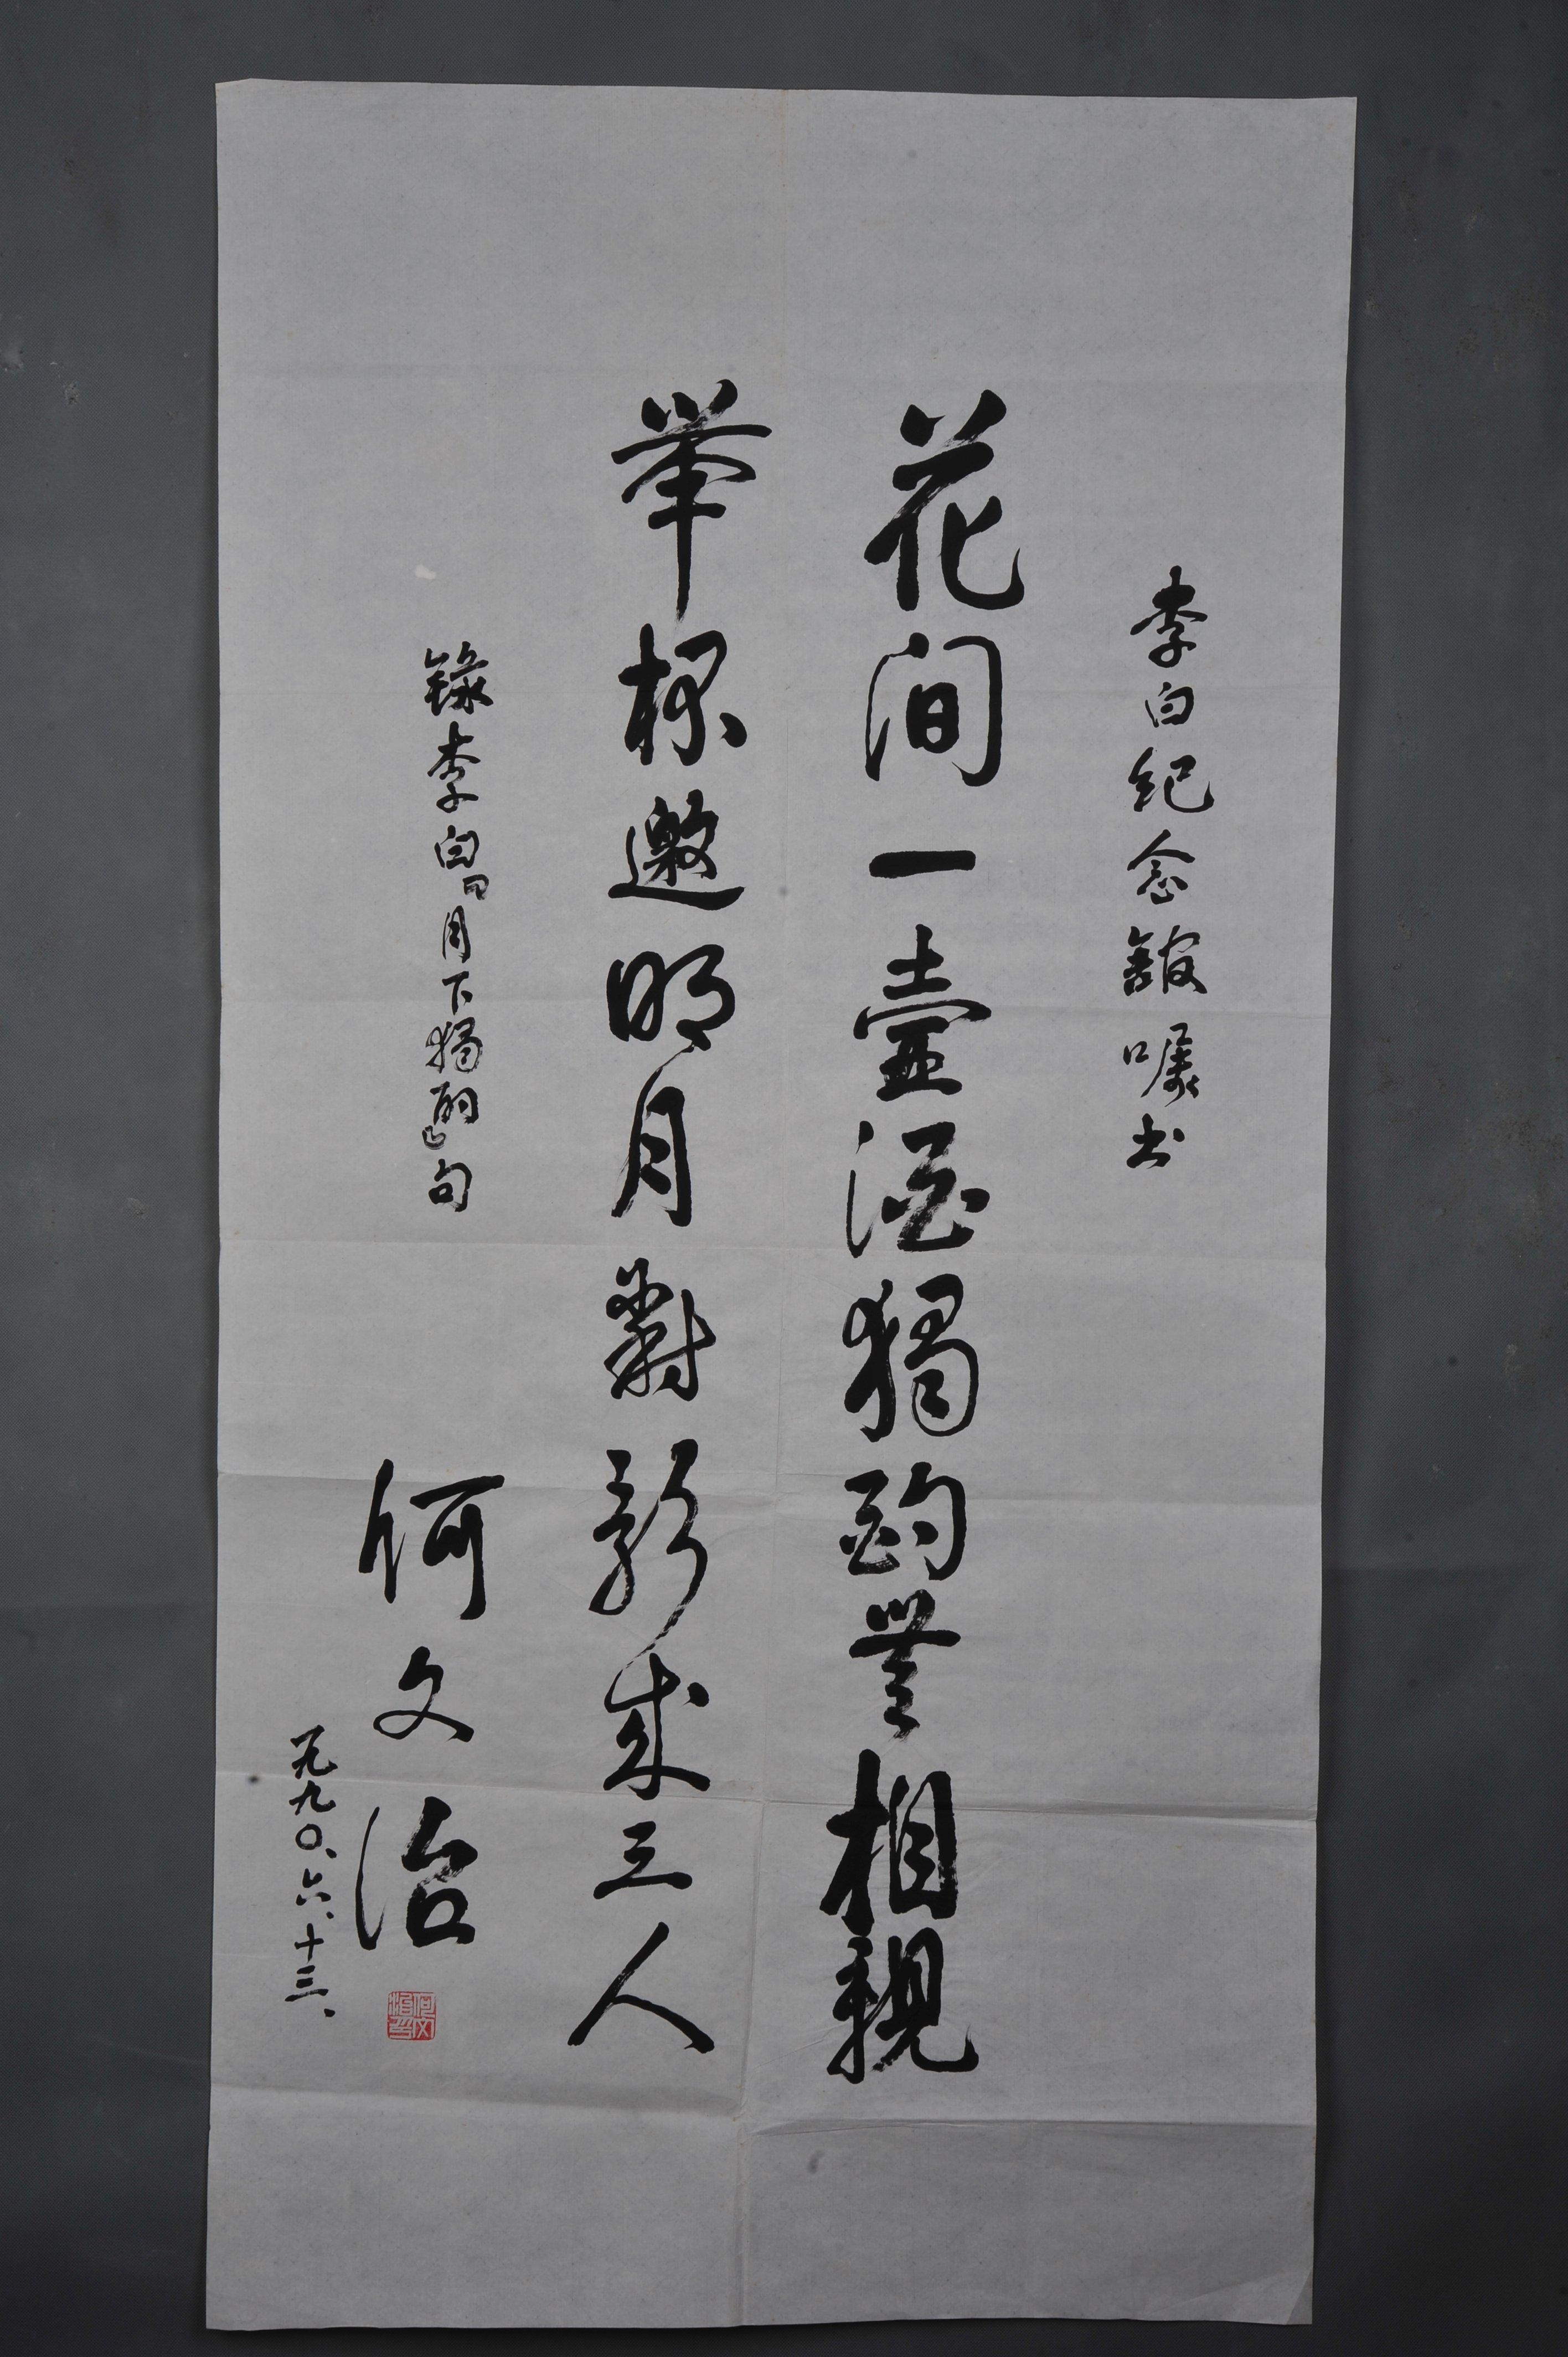 李白纪念館嘱书
花间一壶酒獨酌無相親
举杯邀明月對影成三人
錄李白『月下獨酌』句
何文治
一九九〇、六、十三、
何文治印